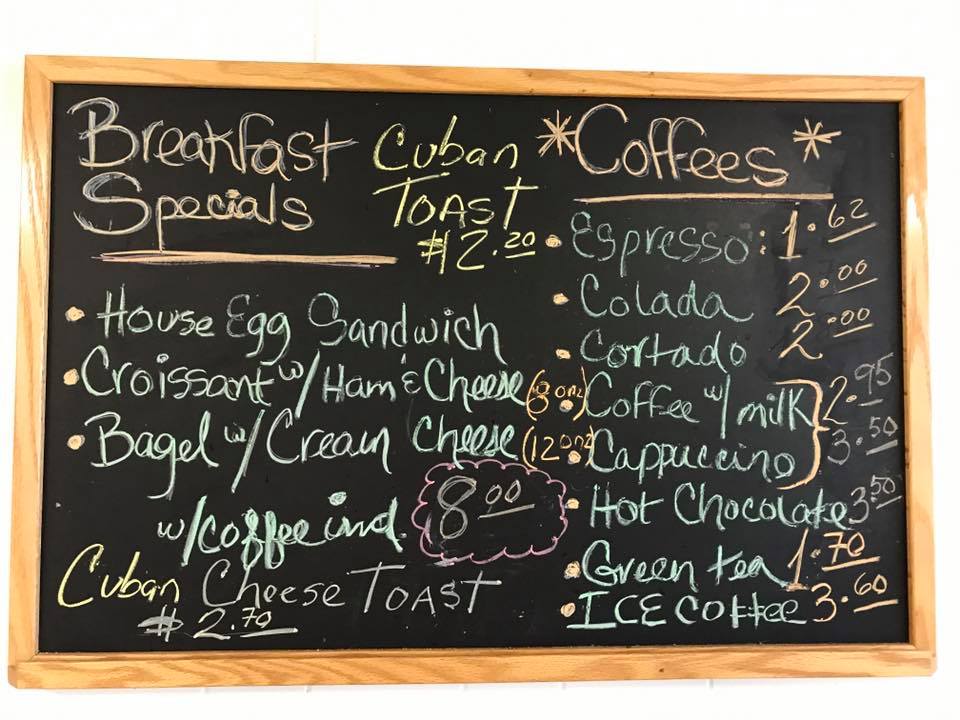 Breakfast
Specials
Cuban
TOAST
$2.20
• House Egg Sandwich
• Croissant w/ Ham & Cheese
• Bagel w/ Cream Cheese
w/coffee incl. 8.00
Cuban Cheese TOAST
$2.70
*Coffees*
• Espresso: 1.62
• Colada 2.00
• Cortado 2.00
(8onz) • Coffee w/ milk } 2.95
(12onz) • Cappuccino } 3.50
• Hot Chocolate 3.50
• Green tea 1.70
• ICE COFFEE 3.60